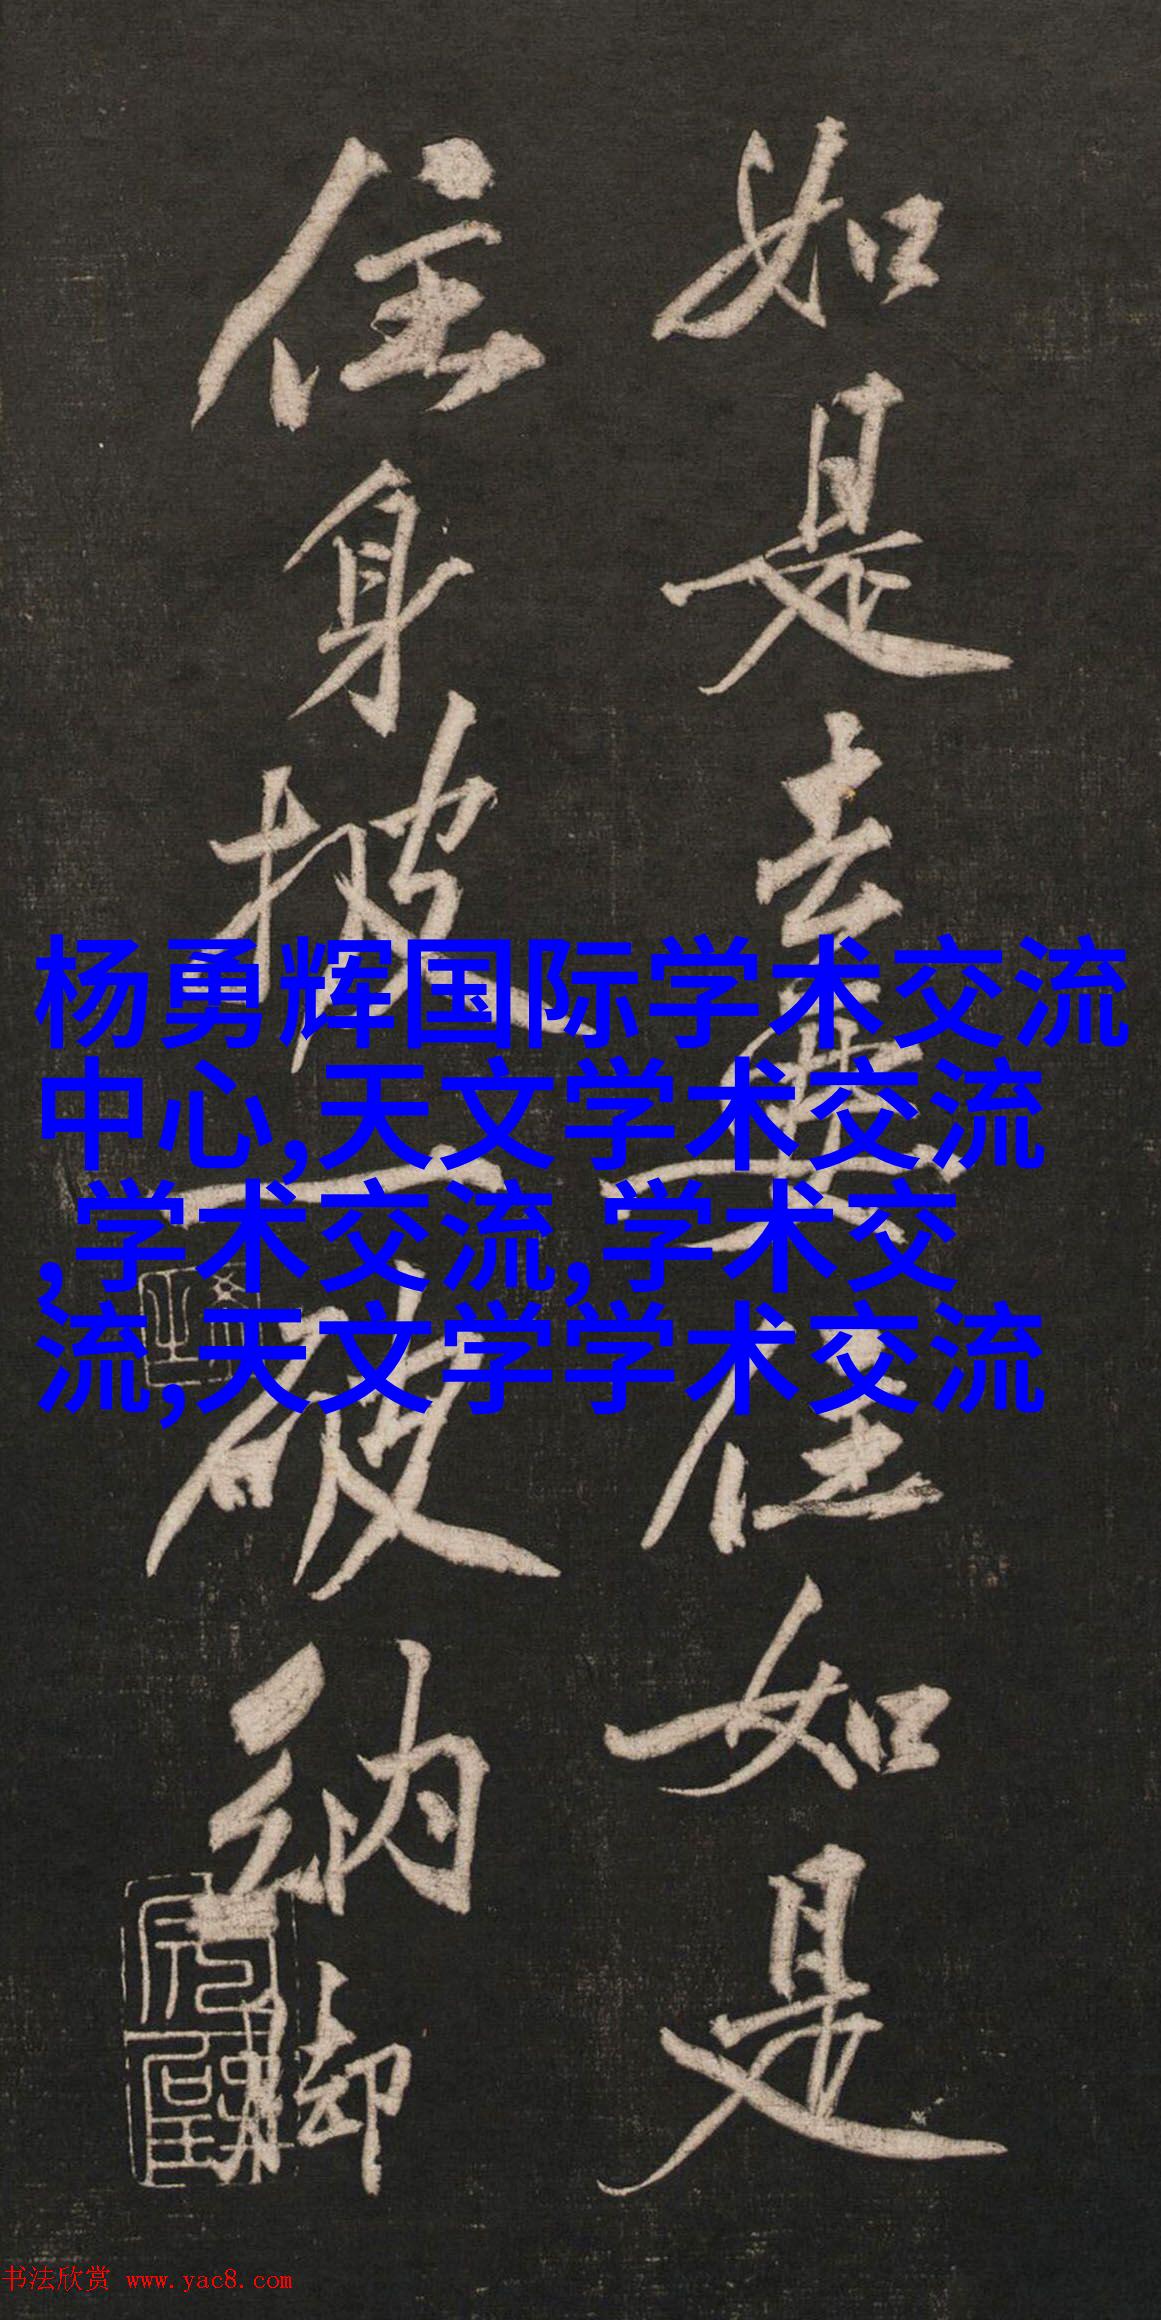 如是去要住如是
住身披一破納脚
杨勇辉国际学术交流
中心,天文学术交流
,学术交流,学术交
流,天文学学术交流
书法欣赏 www.yac8.com